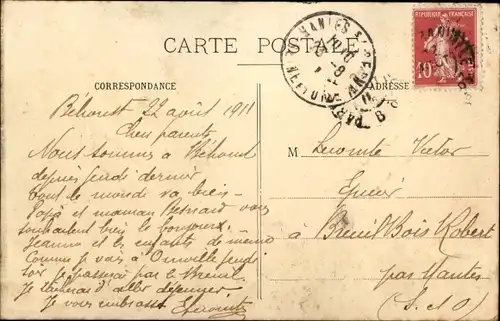 CARTE POSTALE
CORRESPONDANCE
ADRESSE
RÉPUBLIQUE FRANÇAISE
10
Béhoust 22 août 1911
Chers parents
Nous sommes à Béhoust
depuis jeudi dernier
tout le monde va bien
Papa et maman Besnard vous
souhaitent bien le bonjour
Jeanne et les enfants de meme
Comme je vais à Orvilliers jeudi
soir je passerai par le Breuil
Je tâcherai d'aller déjeuner
Je vous embrasse Lecomte
M Lecomte Victor
Epicier
à Breuil Bois Robert
par Mantes
(S. et O)